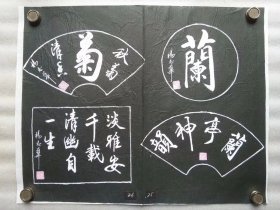 蘭
菊
清香
蘭亭神韻
淡雅安
千載
清幽自
一生